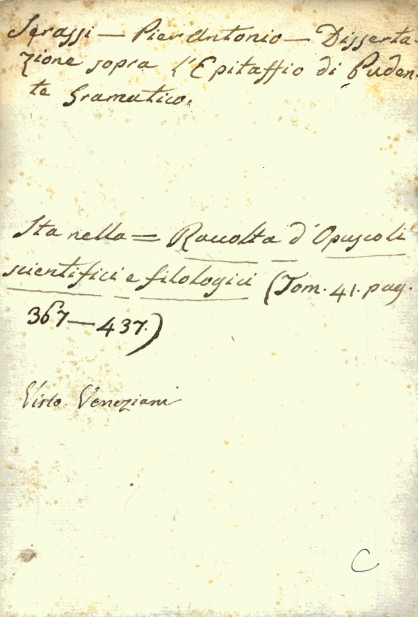 Serassi — Pier Antonio — Disserta-
zione sopra l'Epitaffio di Puden-
te Gramatico.
Sta nella = Raccolta d'Opuscoli
scientifici e filologici (Tom. 41. pag.
367 — 437.)
Visto Veneziani
C